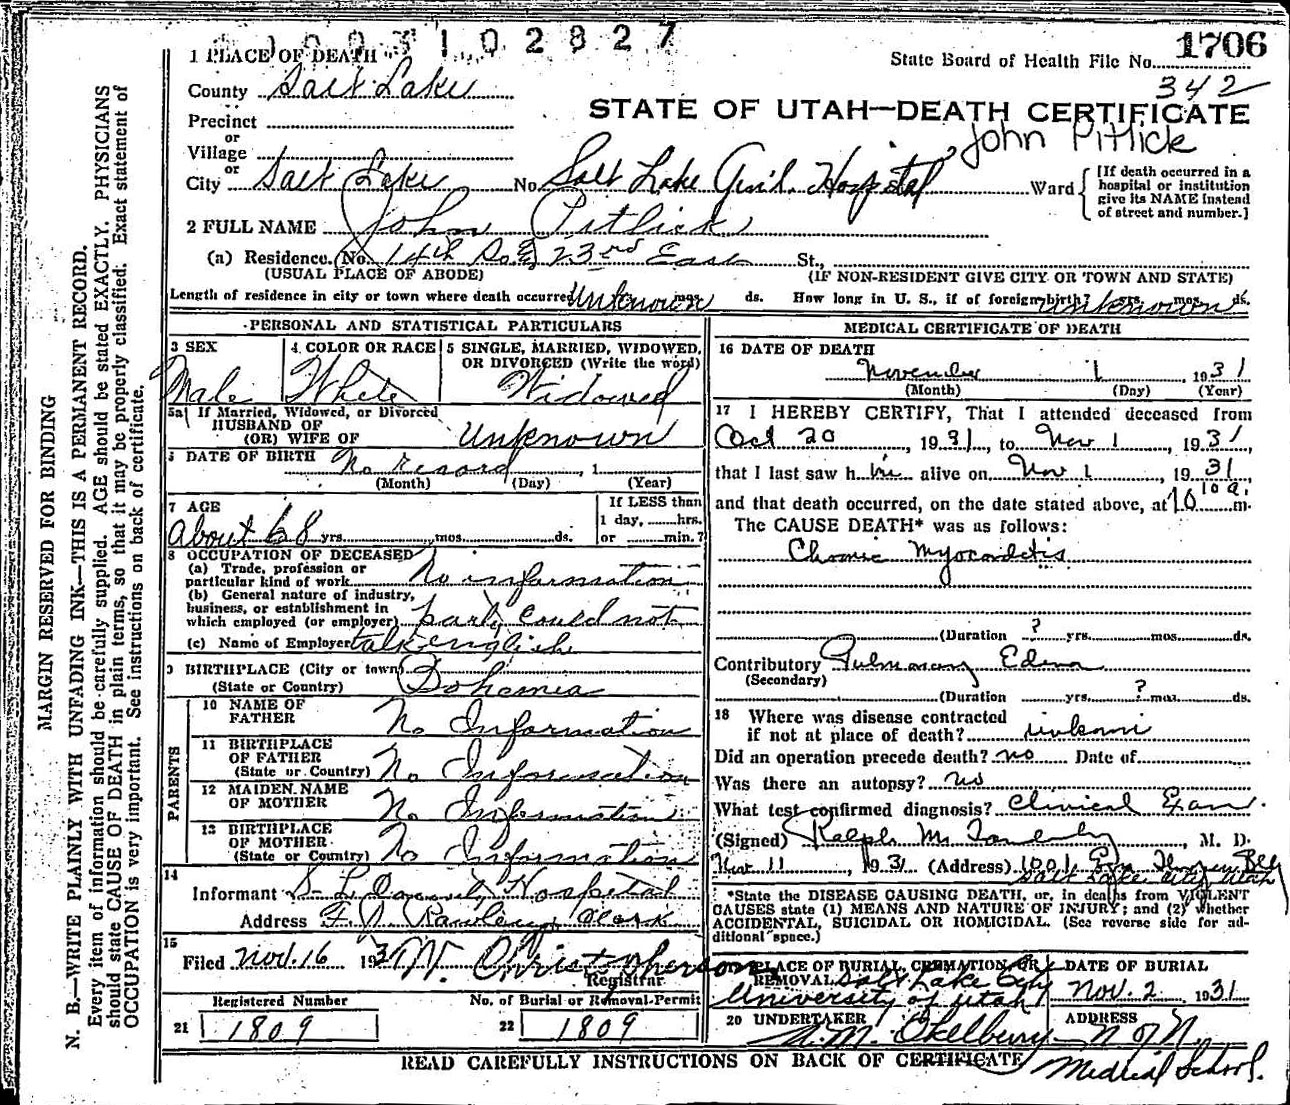 1003102827
1 PLACE OF DEATH
State Board of Health File No. 1706
342
County Salt Lake
STATE OF UTAH—DEATH CERTIFICATE
Precinct
or
Village
John Pitlick
or
City Salt Lake No. Salt Lake Gen'l. Hospital Ward
[If death occurred in a
hospital or institution
give its NAME instead
of street and number.]
2 FULL NAME John Pitlick
(a) Residence. (No. 14th So. & 23rd East St.,
(USUAL PLACE OF ABODE) (IF NON-RESIDENT GIVE CITY OR TOWN AND STATE)
Length of residence in city or town where death occurred Unknown mos. ds. How long in U. S., if of foreign birth? yrs. mos. ds. unknown
PERSONAL AND STATISTICAL PARTICULARS
3 SEX 4 COLOR OR RACE 5 SINGLE, MARRIED, WIDOWED,
OR DIVORCED (Write the word)
Male White Widowed
5a If Married, Widowed, or Divorced
HUSBAND OF
(OR) WIFE OF Unknown
DATE OF BIRTH No record , 1
(Month) (Day) (Year)
7 AGE If LESS than
1 day, hrs.
About 68 yrs. mos. ds. or min.?
8 OCCUPATION OF DECEASED
(a) Trade, profession or
particular kind of work No information
(b) General nature of industry,
business, or establishment in
which employed (or employer) party could not
(c) Name of Employer talk english
9 BIRTHPLACE (City or town)
(State or Country) Bohemia
PARENTS
10 NAME OF
FATHER No Information
11 BIRTHPLACE
OF FATHER
(State or Country) No Information
12 MAIDEN NAME
OF MOTHER No Information
13 BIRTHPLACE
OF MOTHER
(State or Country) No Information
14
Informant S. L. County Hospital
Address Clerk
15
Filed Nov. 16 193 W. Christopherson
Registrar
Registered Number No. of Burial or Removal Permit
21 1809 22 1809
MEDICAL CERTIFICATE OF DEATH
16 DATE OF DEATH
November 1 1931
(Month) (Day) (Year)
17 I HEREBY CERTIFY, That I attended deceased from
Oct 20, 1931, to Nov 1, 1931
that I last saw him alive on Nov 1, 1931,
and that death occurred, on the date stated above, at 10 10 a. m.
The CAUSE DEATH* was as follows:
Chronic Myocarditis
(Duration ? yrs. mos. ds.
Contributory Pulmonary Edema
(Secondary)
(Duration yrs. ? mos. ds.
18 Where was disease contracted
if not at place of death?
Did an operation precede death? no Date of
Was there an autopsy? no
What test confirmed diagnosis? Clinical Exam.
(Signed) Ralph M. , M. D.
Nov 11, 1931 (Address) 1001
Salt Lake City Utah
*State the DISEASE CAUSING DEATH, or, in deaths from VIOLENT
CAUSES state (1) MEANS AND NATURE OF INJURY; and (2) whether
ACCIDENTAL, SUICIDAL OR HOMICIDAL. (See reverse side for ad-
ditional space.)
PLACE OF BURIAL, CREMATION, OR DATE OF BURIAL
REMOVAL Salt Lake City
University of Utah Nov. 2 1931
20 UNDERTAKER ADDRESS
A. M. Okelberry U of U.
Medical School.
READ CAREFULLY INSTRUCTIONS ON BACK OF CERTIFICATE
MARGIN RESERVED FOR BINDING
N. B.—WRITE PLAINLY WITH UNFADING INK—THIS IS A PERMANENT RECORD.
Every item of information should be carefully supplied. AGE should be stated EXACTLY. PHYSICIANS
should state CAUSE OF DEATH in plain terms, so that it may be properly classified. Exact statement of
OCCUPATION is very important. See instructions on back of certificate.